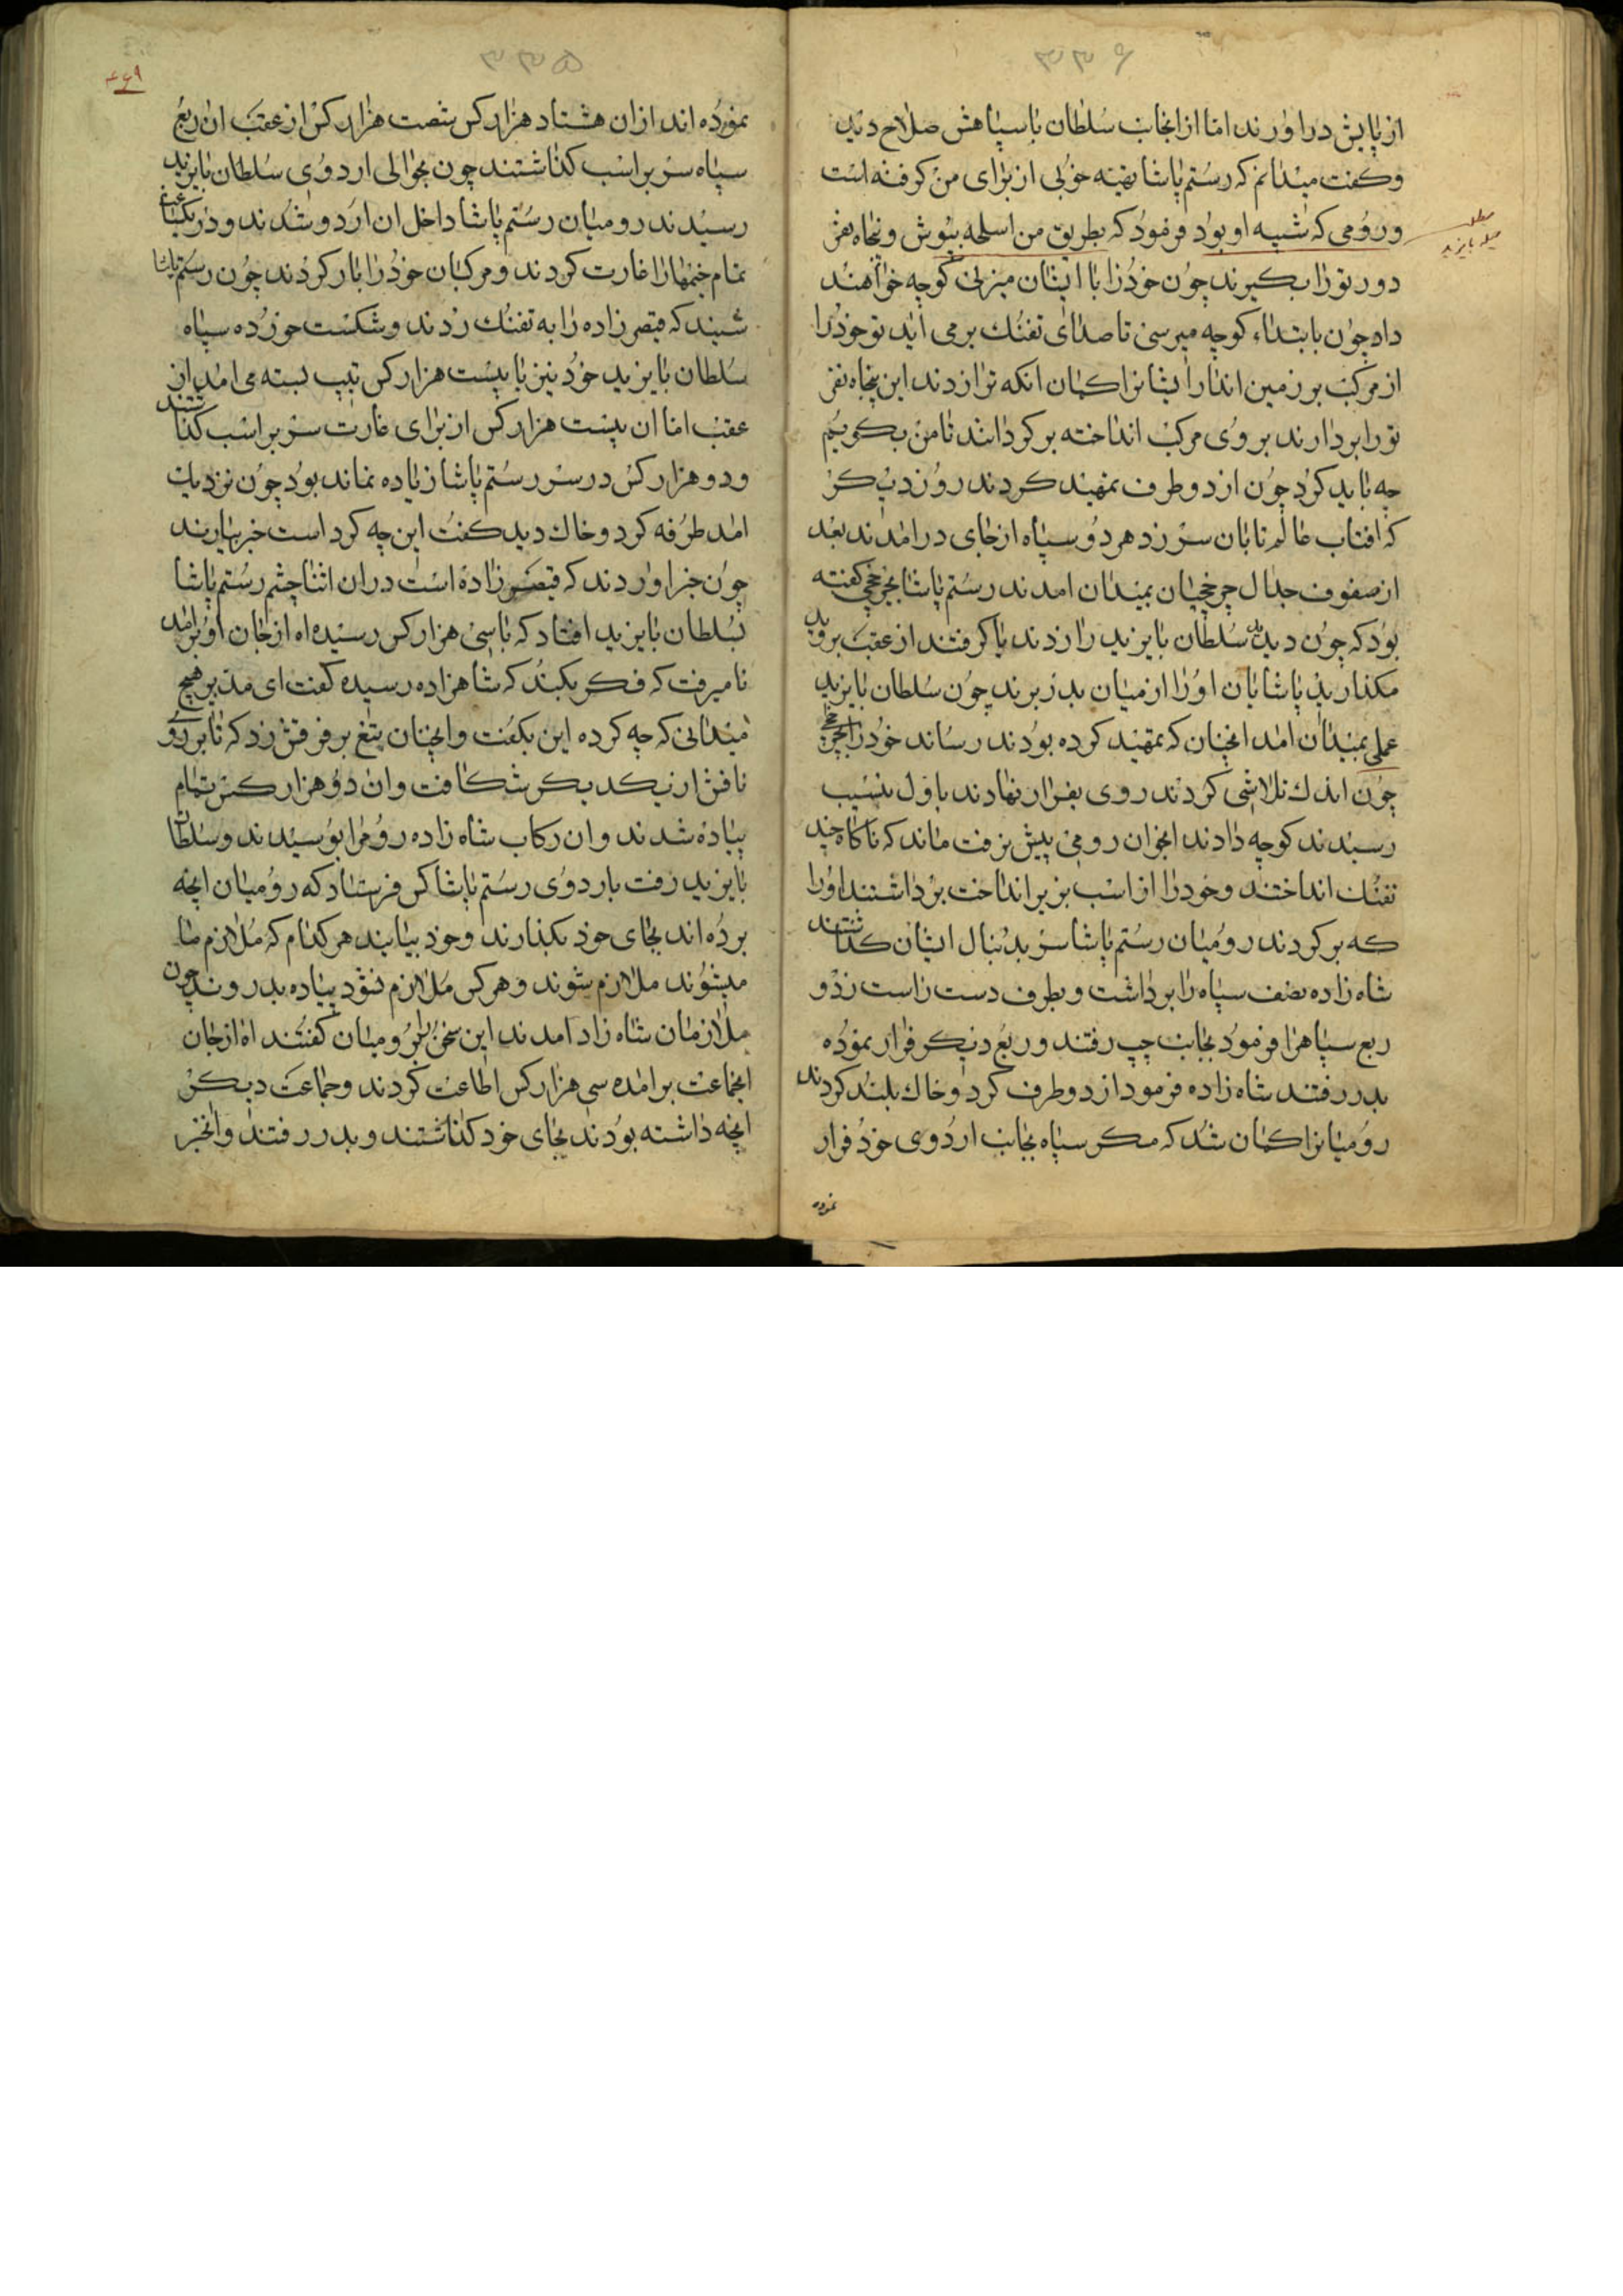 ۳۳۶
از پایش دراورند اما از انجانب سلطان با سپاهش صلاح دید
و کفت میدانم که رستم پاشا تهیه خوبی از برای من کرفته است
و رومی که شبیه او بود فرمود که بطریق من اسلحه بپوش و پنجاه نفر
دور تو را بکیرند چون خود را با ایشان میزنی کوچه خواهند
داد چون بابتداء کوچه میرسی تا صدای تفنك بر می اید تو خود را
از مرکب بر زمین انداز ایشانرا کمان انکه ترا زدند این پنجاه نفر
تو را بردارند بروی مرکب انداخته برکردانند تا من بکویم
چه باید کرد چون از دو طرف تمهید کردند روز دیکر
که افتاب عالم تابان سر زد هر دو سپاه از جای در امدند بعد
از صفوف جدال چرخچیان بمیدان امدند رستم پاشا بچرخچی کفته
بود که چون دیدید سلطان بایزید را زدند یا کرفتند از عقب بروید
مکذارید پاشایان او را از میان بدر برند چون سلطان بایزید
عملی بمیدان امد انچنان که تمهید کرده بودند رساند خود را بچرخچی
چون اندك تلاشی کردند روی بفرار نهادند باول نسیب
رسیدند کوچه دادند انجوان رومی پیش رفت ماند که ناکاه چند
تفنك انداختند و خود را از اسب بزیر انداخت برداشتند او را
که برکردند رومیان رستم پاشا سر بدنبال ایشان کذاشتند
شاه زاده نصف سپاه را برداشت و بطرف دست راست زد و
ربع سپاهرا فرمود بجانب چپ رفتند و ربع دیکر فرار نموده
بدر رفتند شاه زاده فرمود از دو طرف کرد و خاك بلند کردند
رومیانرا کمان شد که مکر سپاه بجانب اردوی خود فرار
نموده
۳۳۵
نموده اند ازان هشتاد هزار کس شصت هزار کس از عقب ان ربع
سپاه سر بر اسب کذاشتند چون بحوالی اردوی سلطان بایزید
رسیدند رومیان رستم پاشا داخل ان اردو شدند و در یکساعت
تمام خیمهارا غارت کردند و مرکبان خود را بار کردند چون رستم پاشا
شنید که قیصر زاده را به تفنك زدند و شکست خورده سپاه
سلطان بایزید خود نیز با بیست هزار کس تیپ بسته می امد از
عقب اما ان بیست هزار کس از برای غارت سر بر اسب کذاشتند
و دو هزار کس در سر رستم پاشا زیاده نماند بود چون نزدیك
امد طرفه کرد و خاك دید کفت این چه کرد است خبر بیارید
چون خبر اوردند که قیصر زاده است دران اثنا چشم رستم پاشا
بسلطان بایزید افتاد که با سی هزار کس رسیده اه از جان او برامد
تا میرفت که فکر بکند که شاهزاده رسیده کفت ای مدبر هیچ
میدانی که چه کرده این بکفت و انچنان تیغ بر فرقش زد که تا بر روی
نافش از یکدیکر شکافت و ان دو هزار کس بتمام
پیاده شدند و ان رکاب شاه زاده روم را بوسیدند و سلطان
بایزید رفت باردوی رستم پاشا کس فرستاد که رومیان انچه
برده اند بجای خود بکذارند و خود بیایند هر کدام که ملازم ما
میشوند ملازم شوند و هر کس ملازم نشود پیاده بدر روند چون
ملازمان شاه زاد امدند این سخن برومیان کفتند اه از جان
انجماعت برامده سی هزار کس اطاعت کردند و جماعت دیکر
انچه داشته بودند بجای خود کذاشتند و بدر رفتند و انخبر